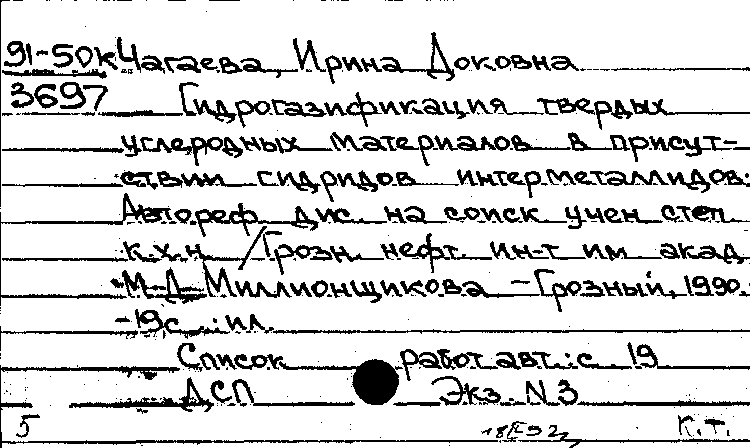 91-50к Чагаева, Ирина Доковна
3697 Гидрогазификация твердых
углеродных материалов в присут-
ствии гидридов интерметаллидов:
Автореф. дис. на соиск учен степ
к.х.н. /Грозн. нефт. ин-т им акад
М.Д. Миллионщикова - Грозный, 1990.
-19с.: ил.
Список работ авт.: с. 19
ДСП Экз. N 3
5 К.Т.